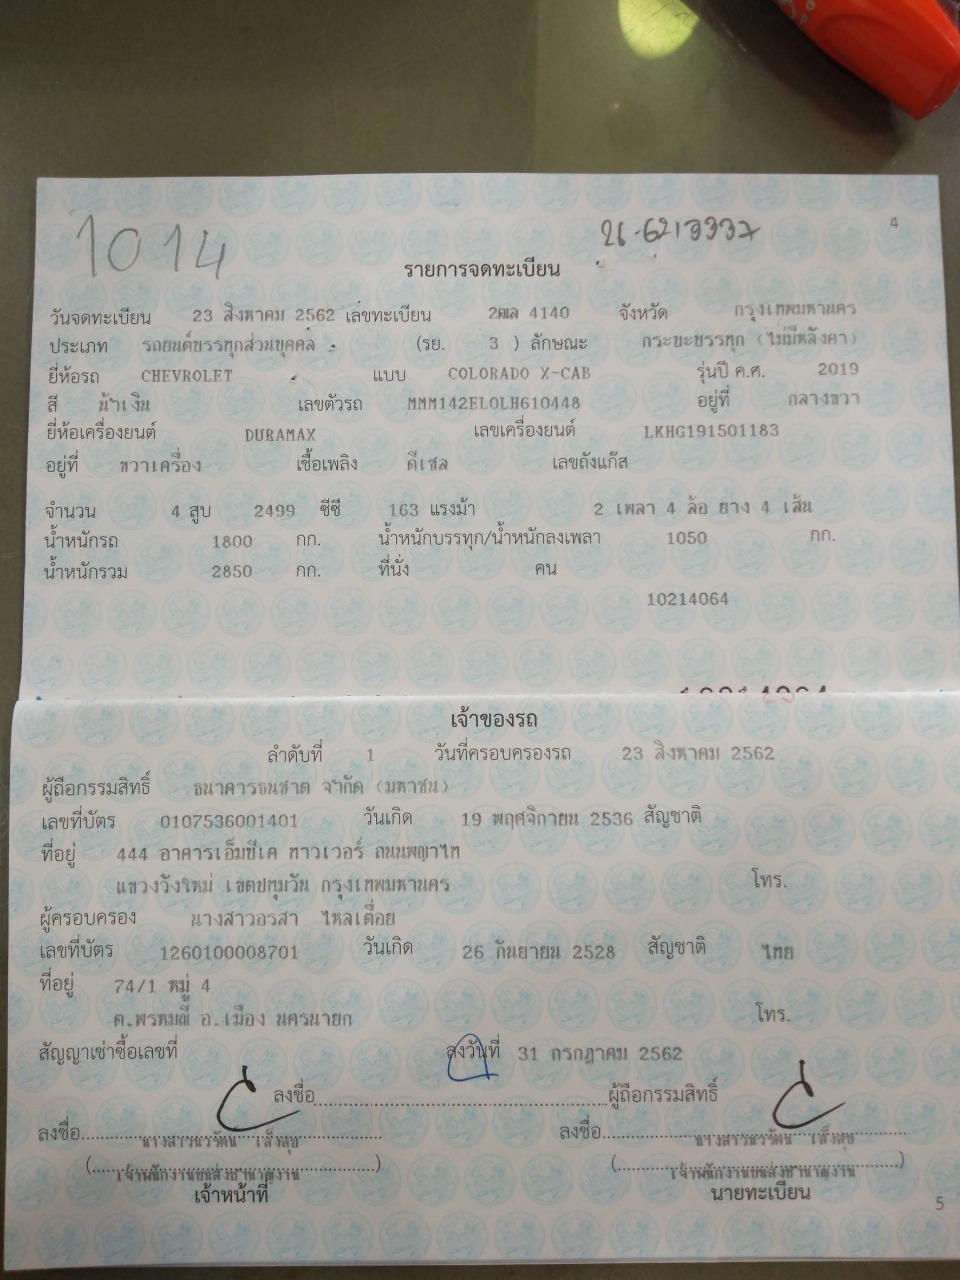 1014
26-6213337
4
รายการจดทะเบียน
วันจดทะเบียน 23 สิงหาคม 2562 เลขทะเบียน 2ฒล 4140 จังหวัด กรุงเทพมหานคร
ประเภท รถยนต์บรรทุกส่วนบุคคล (รย. 3 ) ลักษณะ กระบะบรรทุก (ไม่มีหลังคา)
ยี่ห้อรถ CHEVROLET แบบ COLORADO X-CAB รุ่นปี ค.ศ. 2019
สี น้ำเงิน เลขตัวรถ MMM142ELOLH610448 อยู่ที่ กลางขวา
ยี่ห้อเครื่องยนต์ DURAMAX เลขเครื่องยนต์ LKHG191501183
อยู่ที่ ขวาเครื่อง เชื้อเพลิง ดีเซล เลขถังแก๊ส
จำนวน 4 สูบ 2499 ซีซี 163 แรงม้า 2 เพลา 4 ล้อ ยาง 4 เส้น
น้ำหนักรถ 1800 กก. น้ำหนักบรรทุก/น้ำหนักลงเพลา 1050 กก.
น้ำหนักรวม 2850 กก. ที่นั่ง คน
10214064
เจ้าของรถ
ลำดับที่ 1 วันที่ครอบครองรถ 23 สิงหาคม 2562
ผู้ถือกรรมสิทธิ์ ธนาคารธนชาต จำกัด (มหาชน)
เลขที่บัตร 0107536001401 วันเกิด 19 พฤศจิกายน 2536 สัญชาติ
ที่อยู่ 444 อาคารเอ็มบีเค ทาวเวอร์ ถนนพญาไท
แขวงวังใหม่ เขตปทุมวัน กรุงเทพมหานคร โทร.
ผู้ครอบครอง นางสาวอรสา ไหลเตื่อย
เลขที่บัตร 1260100008701 วันเกิด 26 กันยายน 2528 สัญชาติ ไทย
ที่อยู่ 74/1 หมู่ 4
ต.พรหมณี อ.เมือง นครนายก โทร.
สัญญาเช่าซื้อเลขที่ ลงวันที่ 31 กรกฎาคม 2562
ลงชื่อ ผู้ถือกรรมสิทธิ์
ลงชื่อ นางสาวนวรัตน์ เส็งสุข ลงชื่อ นางสาวนวรัตน์ เส็งสุข
(เจ้าพนักงานขนส่งชำนาญงาน) (เจ้าพนักงานขนส่งชำนาญงาน)
เจ้าหน้าที่ นายทะเบียน
5